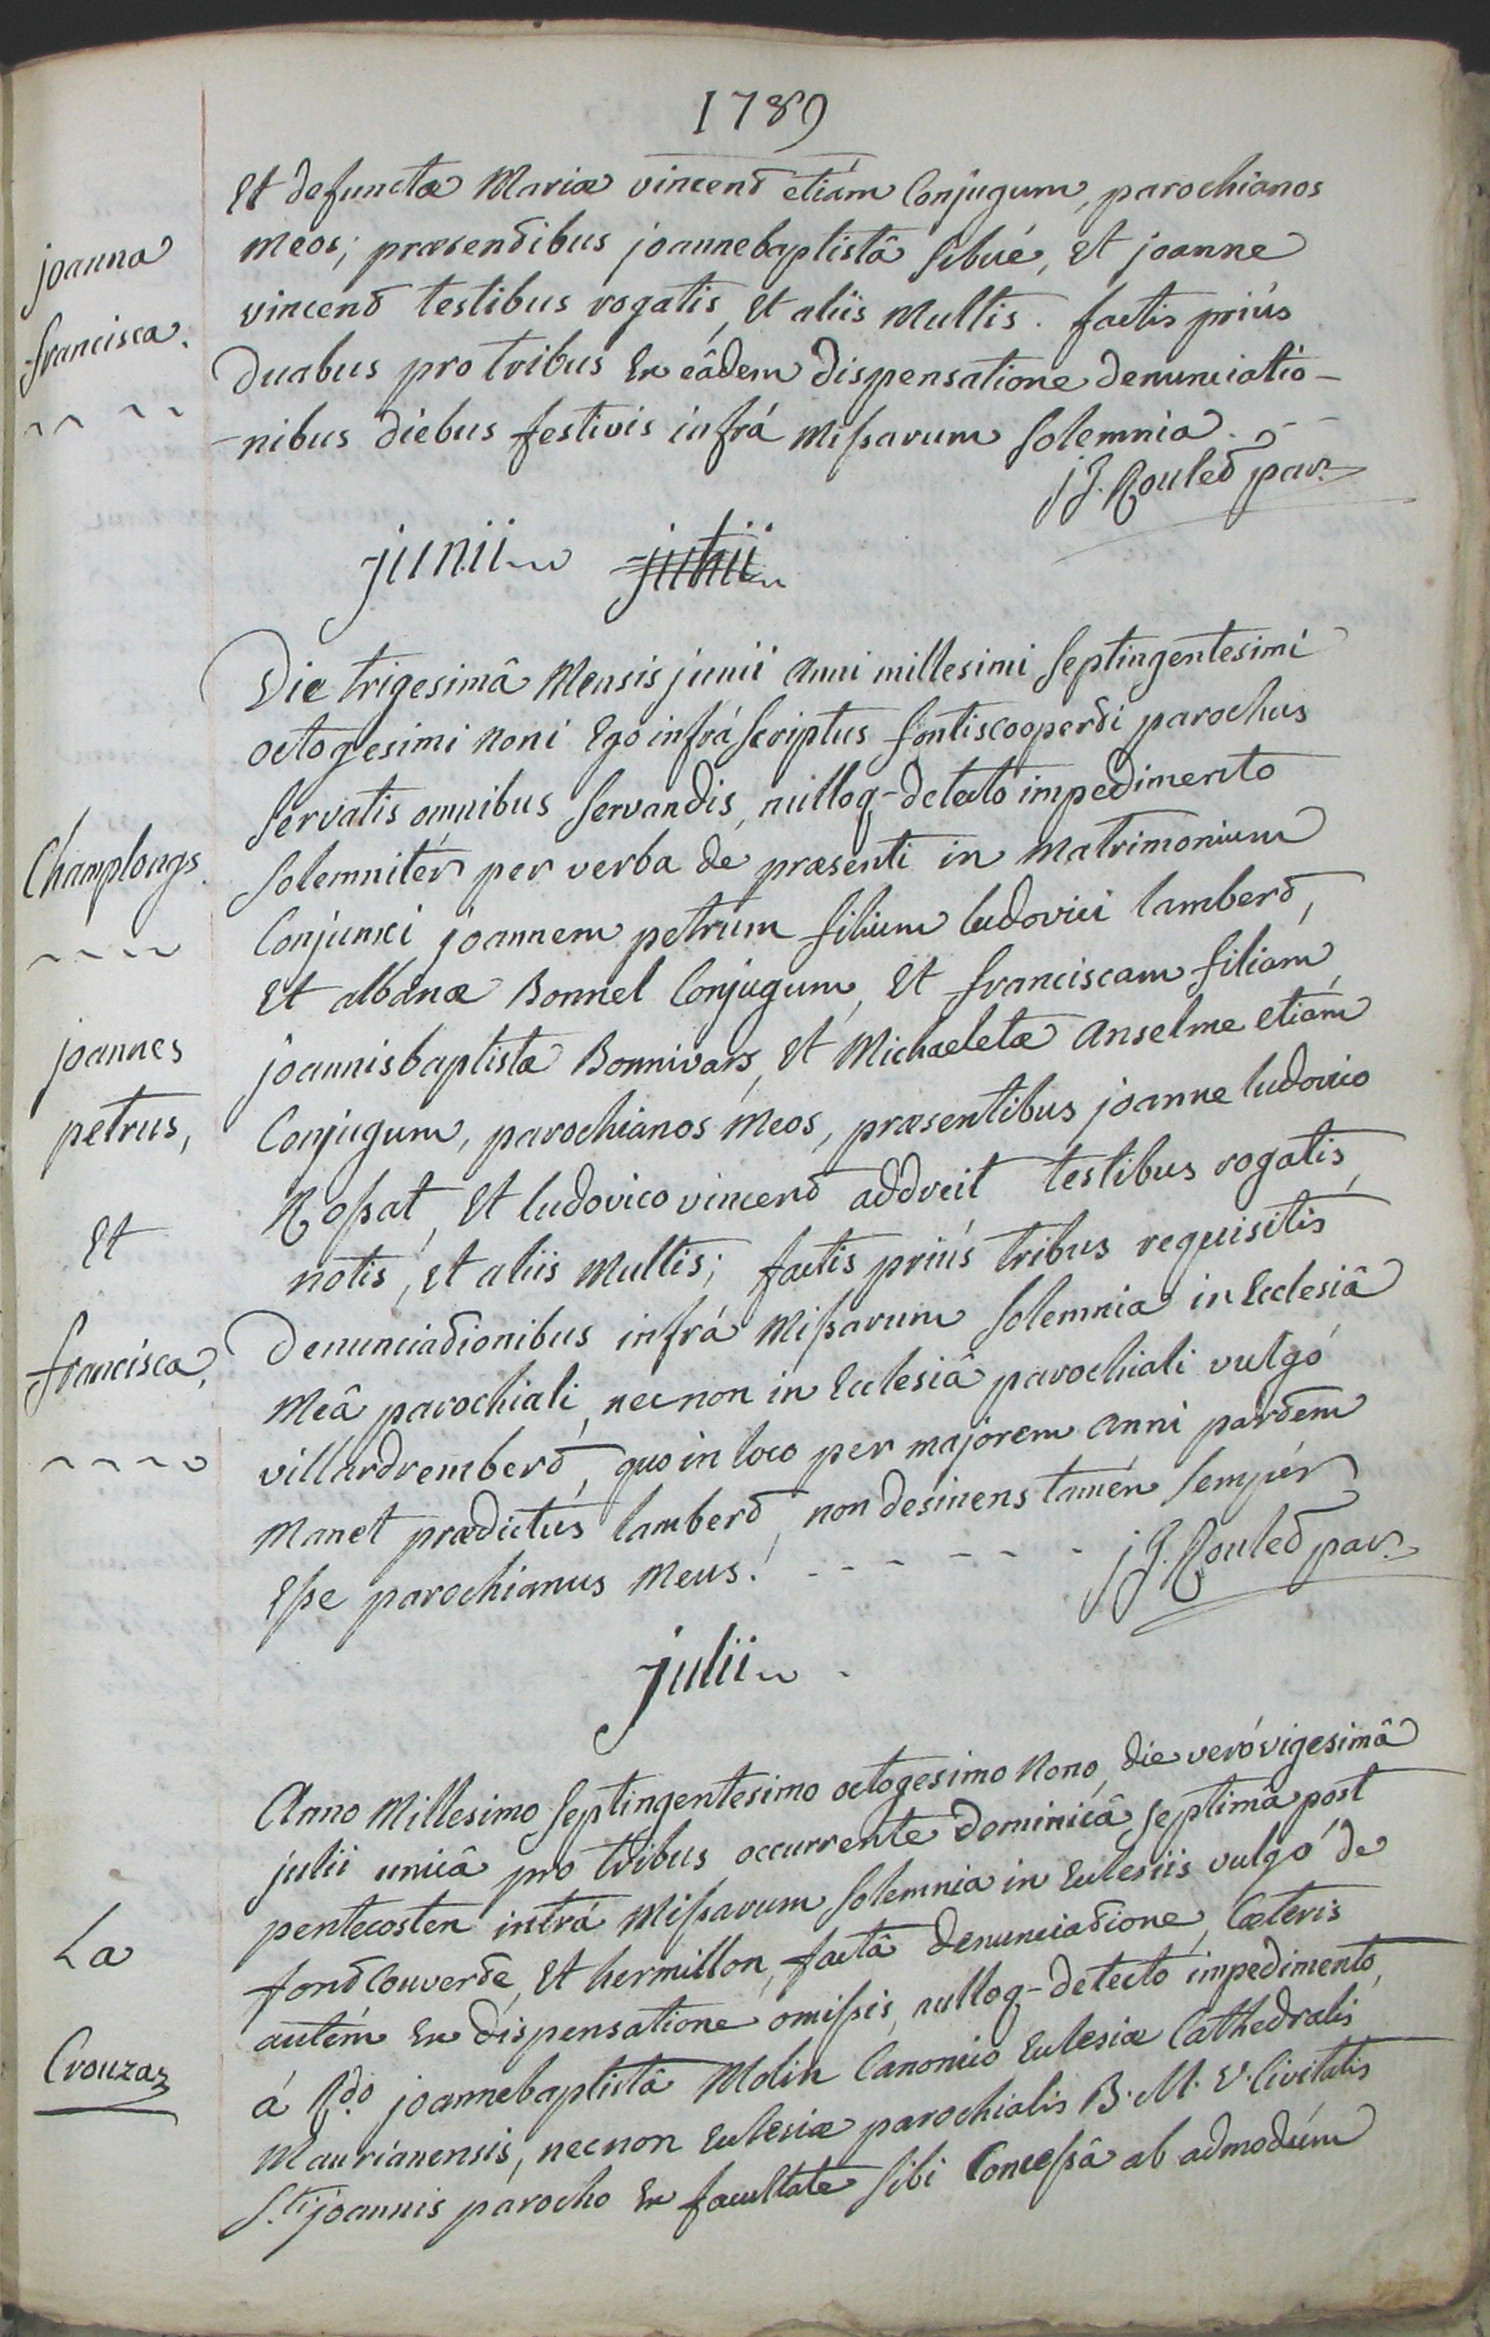 1789
Et defunctæ Mariæ vincend etiám Conjugum, parochianos
joanna
meos; præsendibus joannebaptistâ Sibué, Et joanne
francisca.
vincend testibus rogatis, Et aliis Multis. factis priús
duabus pro tribus Ex eâdem dispensatione denunciatio-
-nibus diebus festivis infrá Missarum Solemnia.
j J. Rouled par.
junii julii
Die trigesimâ Mensis junii anni millesimi Septingentesimi
octogesimi noni Ego infrá Scriptus fontiscooperdi parochus
Servatis omnibus Servandis, nulloq-detecto impedimento
Champlongs.
Solemnitér per verba de præsenti in Matrimonium
Conjunxi joannem petrum filium ludovici lamberd,
Et albanæ Bonnel Conjugum, Et franciscam filiam
joannes
joannisbaptistæ Bonnivars, Et Michaeletæ anselme etiám
petrus,
Conjugum, parochianos Meos, præsentibus joanne ludovico
Rossat, Et ludovico vincend addreit testibus rogatis,
Et
notis, Et aliis Multis; factis priús tribus requisitis
francisca,
Denunciadionibus infrá Missarum Solemnia in Ecclesiâ
Meâ parochiali, necnon in Ecclesiâ parochiali vulgó
villardremberd, quo in loco per majorem anni pardem
Manet prædictus lamberd, non desinens tamén Sempér
Esse parochianus Meus. - - - - - -
j J. Rouled par.
julii
Anno Millesimo Septingentesimo octogesimo Nono, die veró vigesimâ
julii unicâ pro tribus occurrente dominicâ Septimâ post
pentecosten intrá Missarum Solemnia in Ecclesiis vulgó de
La
fondCouverde, Et hermillon, factâ denunciadione, Cæteris
autém Ex dispensatione omissis, nulloq-detecto impedimento,
Crouzaz
á R.do joannebaptistâ Molin Canonico Ecclesiæ Cathedralis
Maurianensis, necnon Ecclesiæ parochialis B. M. V. Civitatis
S.ti joannis parocho Ex facultate Sibi Concessâ ab admodúm